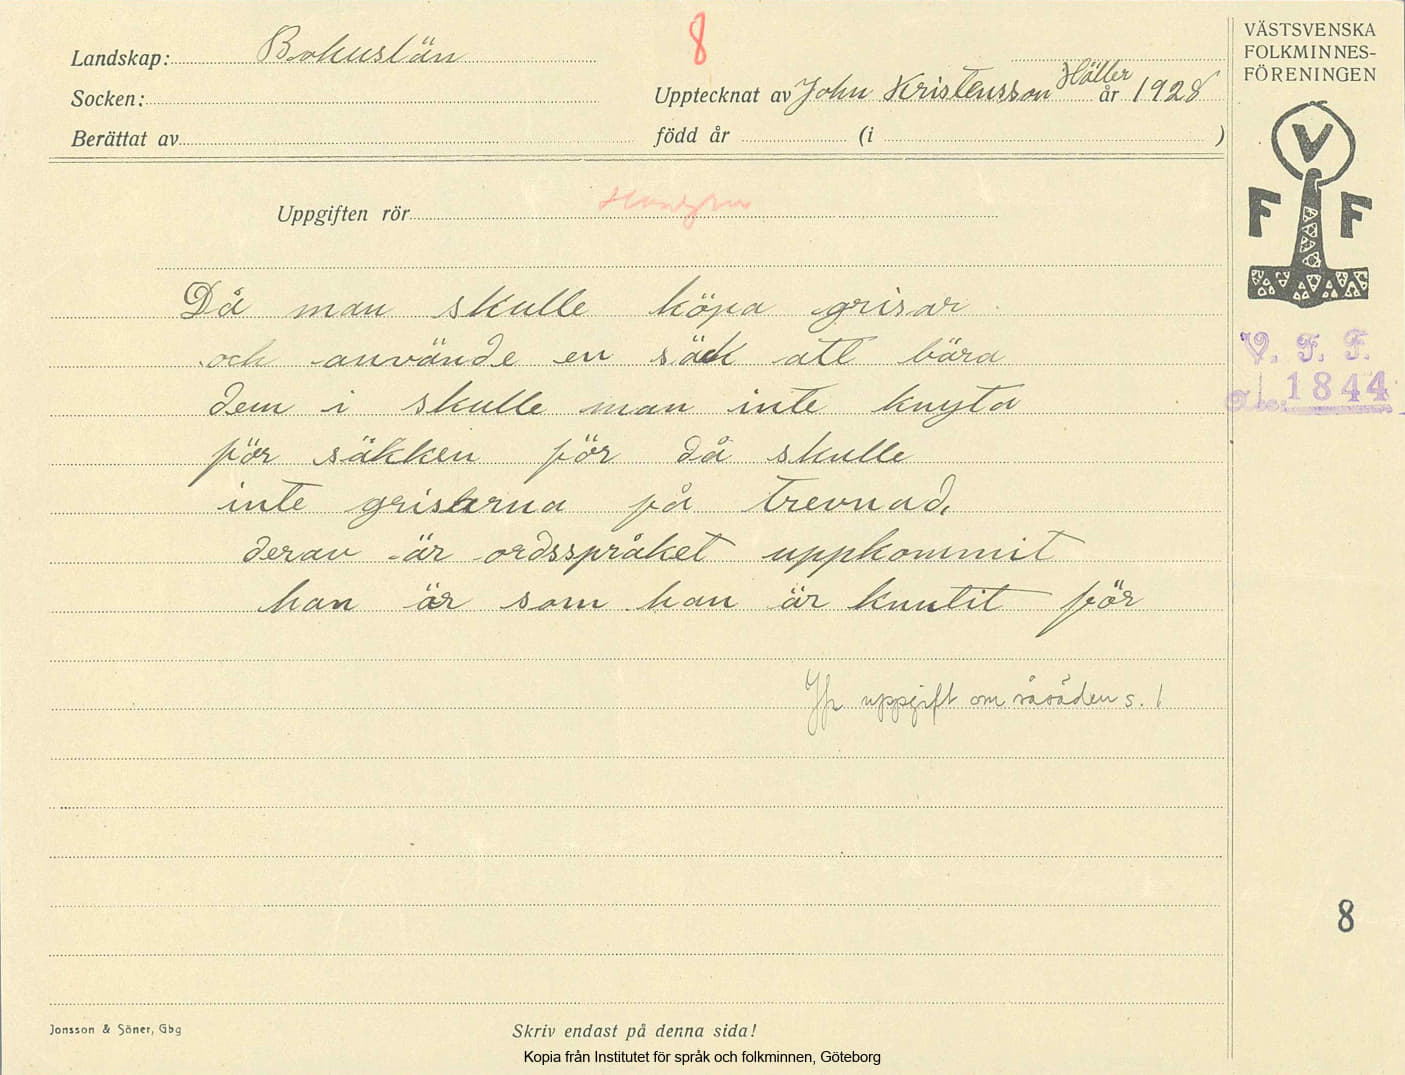 Landskap: Bohuslän
8
Socken:
Upptecknat av John Kristensson Häller år 1928
Berättat av
född år (i )
Uppgiften rör
Då man skulle köpa grisar
och använde en säck att bära
dem i skulle man inte knyta
för säkken för då skulle
inte grisarna få trevnad,
derav är ordsspråket uppkommit
han är som han är knutit för
Jfr uppgift om såsäden s. 1
Jonsson & Söner, Gbg
Skriv endast på denna sida!
Kopia från Institutet för språk och folkminnen, Göteborg
VÄSTSVENSKA
FOLKMINNES-
FÖRENINGEN
V
F F
V. F. F.
1844
8